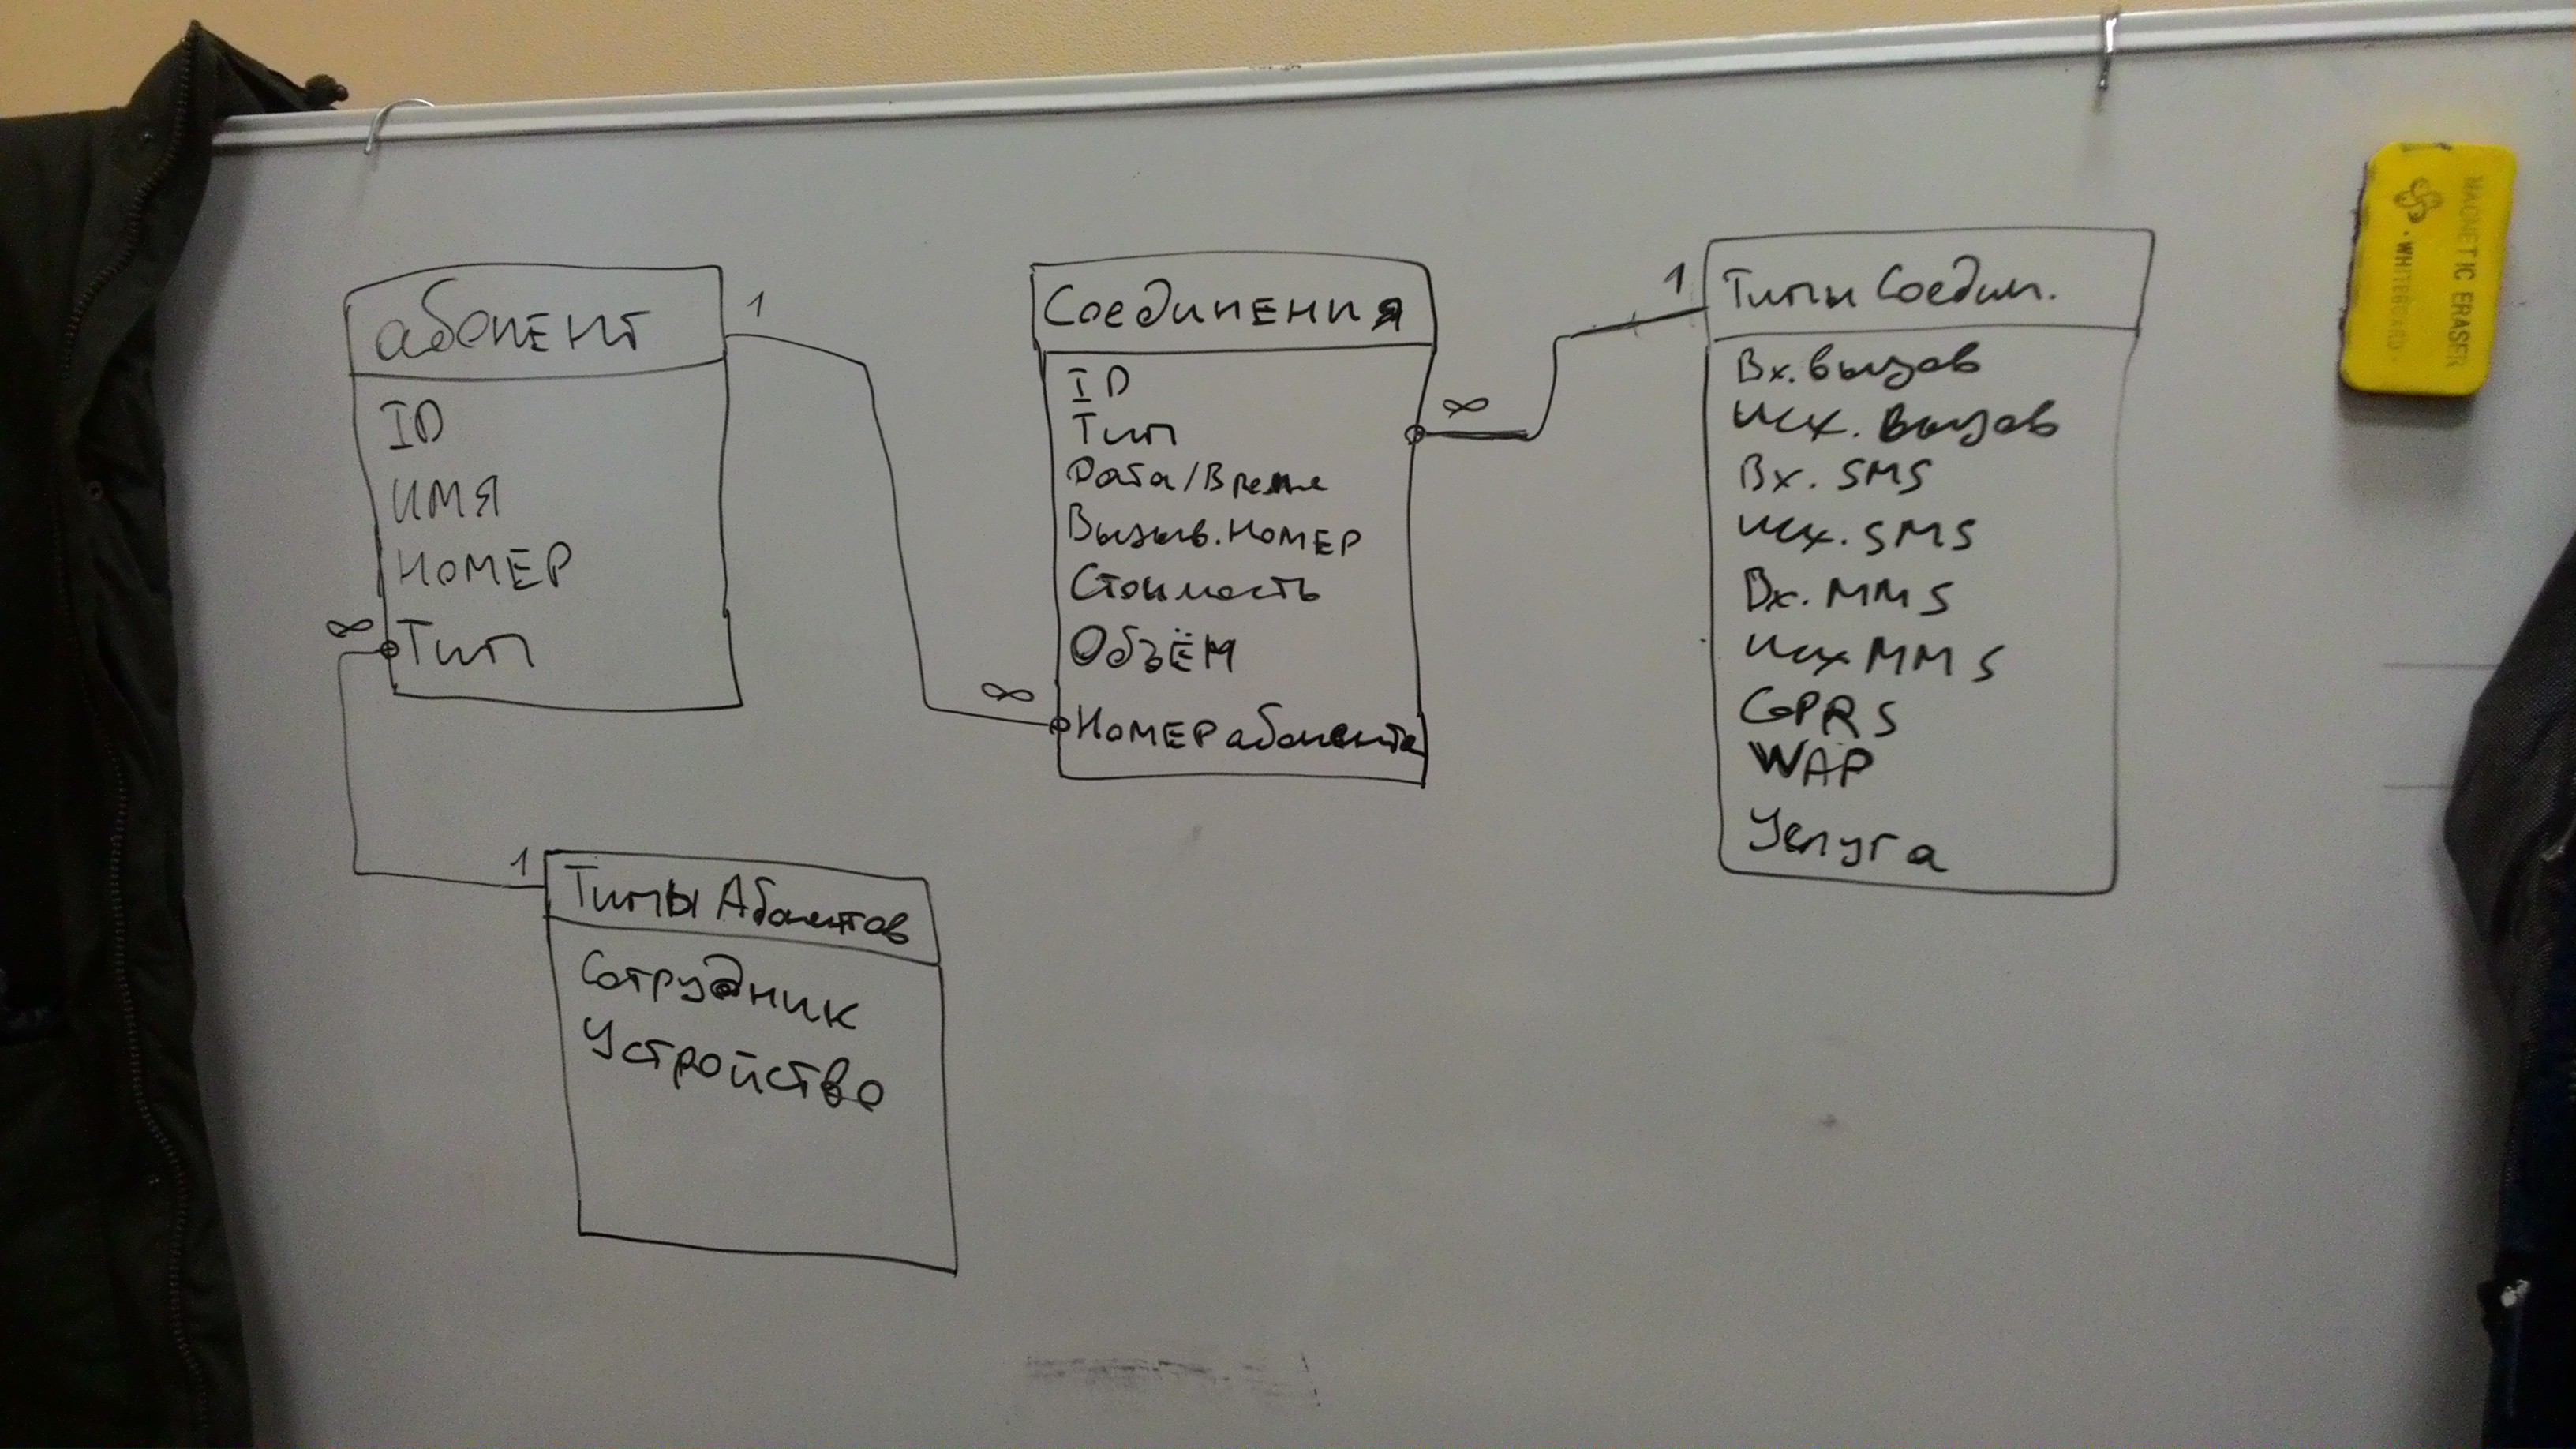 абонент
ID
имя
номер
∞
Тип
1
Соединения
ID
Тип
Дата/Время
Вызыв. номер
Стоимость
Объём
∞
Номер абонента
∞
1
Типы Соедин.
Вх. вызов
исх. вызов
Вх. SMS
исх. SMS
Вх. MMS
исх MMS
GPRS
WAP
Услуга
1
Типы Абонентов
Сотрудник
Устройство
MAGNETIC ERASER
· WHITEBOARD ·